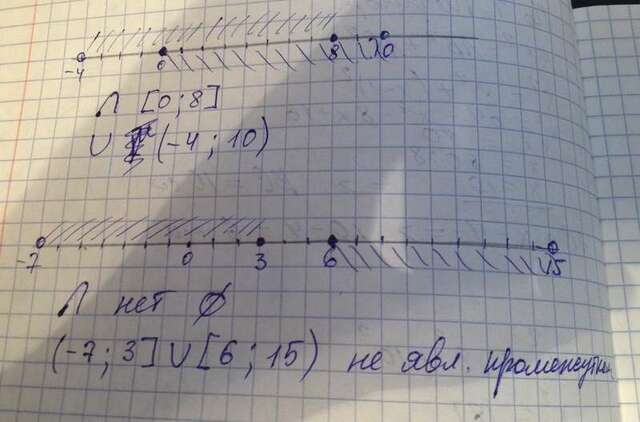 -4 0 8 10
∩ [0; 8]
∪ (-4; 10)
-7 0 3 6 15
∩ нет ∅
(-7; 3] ∪ [6; 15) не явл.